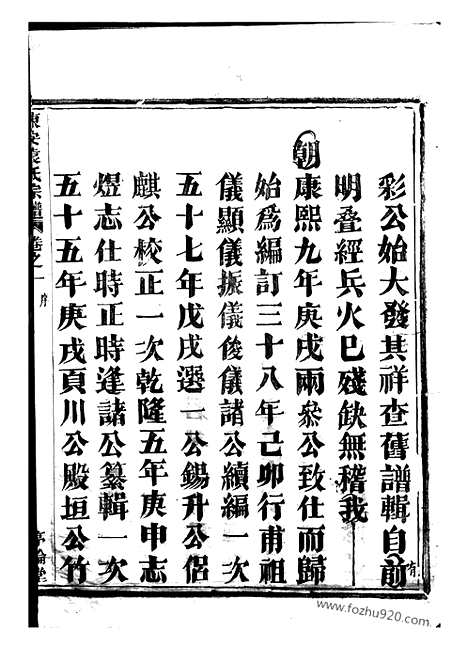 彩公始大發其祥查舊譜輯自前
明叠經兵火巳殘缺無稽我
朝康熙九年庚戌兩參公致仕而歸
始爲編訂三十八年己卯行甫祖
儀顯儀振儀後儀諸公續編一次
五十七年戊戌選一公錫升公侶
麒公校正一次乾隆五年庚申志
煜志仕時正時逢諸公纂輯一次
五十五年庚戌頁川公殿垣公竹
氏宗譜 卷之一 序
堂
www.fozhu920.com